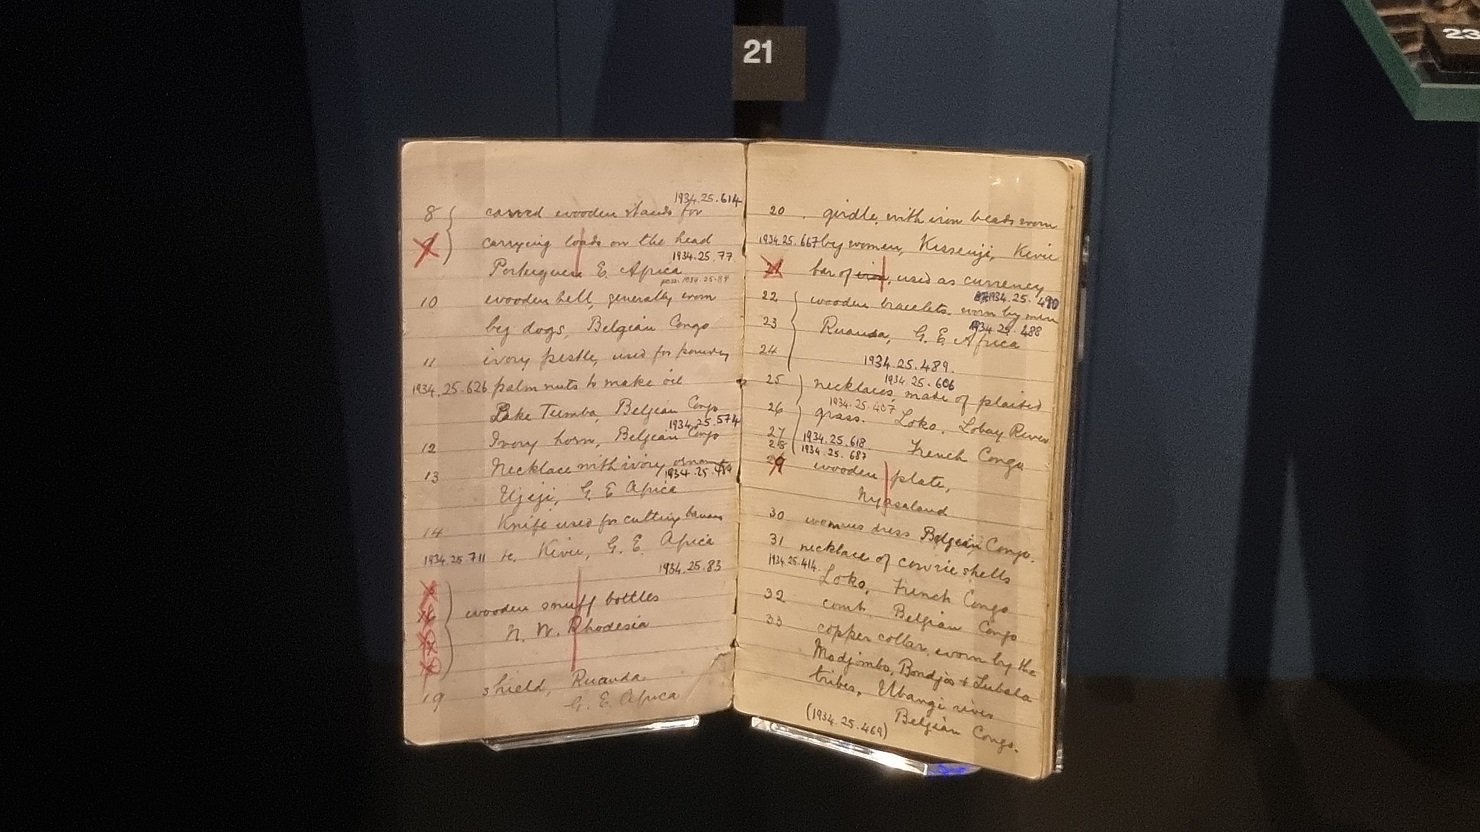 21
23
1934.25.614
8 carved wooden stands for
9 carrying loads on the head
1934.25.77
Portuguese E. Africa
poss. 1934.25.89
10 wooden bell, generally worn
by dogs, Belgian Congo
11 ivory pestle, used for
1934.25.626 palm nuts to make oil
Lake Tumba, Belgian Congo
1934.25.574
12 Ivory horn, Belgian Congo
13 Necklace with ivory
1934.25.484
Ujiji, G. E. Africa
14 Knife used for cutting
1934.25.711 Kivu, G. E. Africa
1934.25.83
wooden snuff bottles
N. W. Rhodesia
19 shield, Ruanda
G. E. Africa
20. girdle, with iron beads worn
1934.25.667 by women, Kissenji, Kivu
21 bar of iron, used as currency
1934.25.490
22 wooden bracelets. worn by men
1934.25.488
23 Ruanda, G. E. Africa
24 1934.25.489.
1934.25.606
25 necklaces, made of plaited
1934.25.407
26 grass. Loko, Lobay River
27 1934.25.618 French Congo
28 1934.25.687
29 wooden plate,
Nyasaland
30 womens dress Belgian Congo.
31 necklace of cowrie shells
1934.25.414 Loko, French Congo
32 comb. Belgian Congo
33 copper collar, worn by the
Modjombo, Bondjos & Lubala
tribes, Ubangi river
(1934.25.469) Belgian Congo.